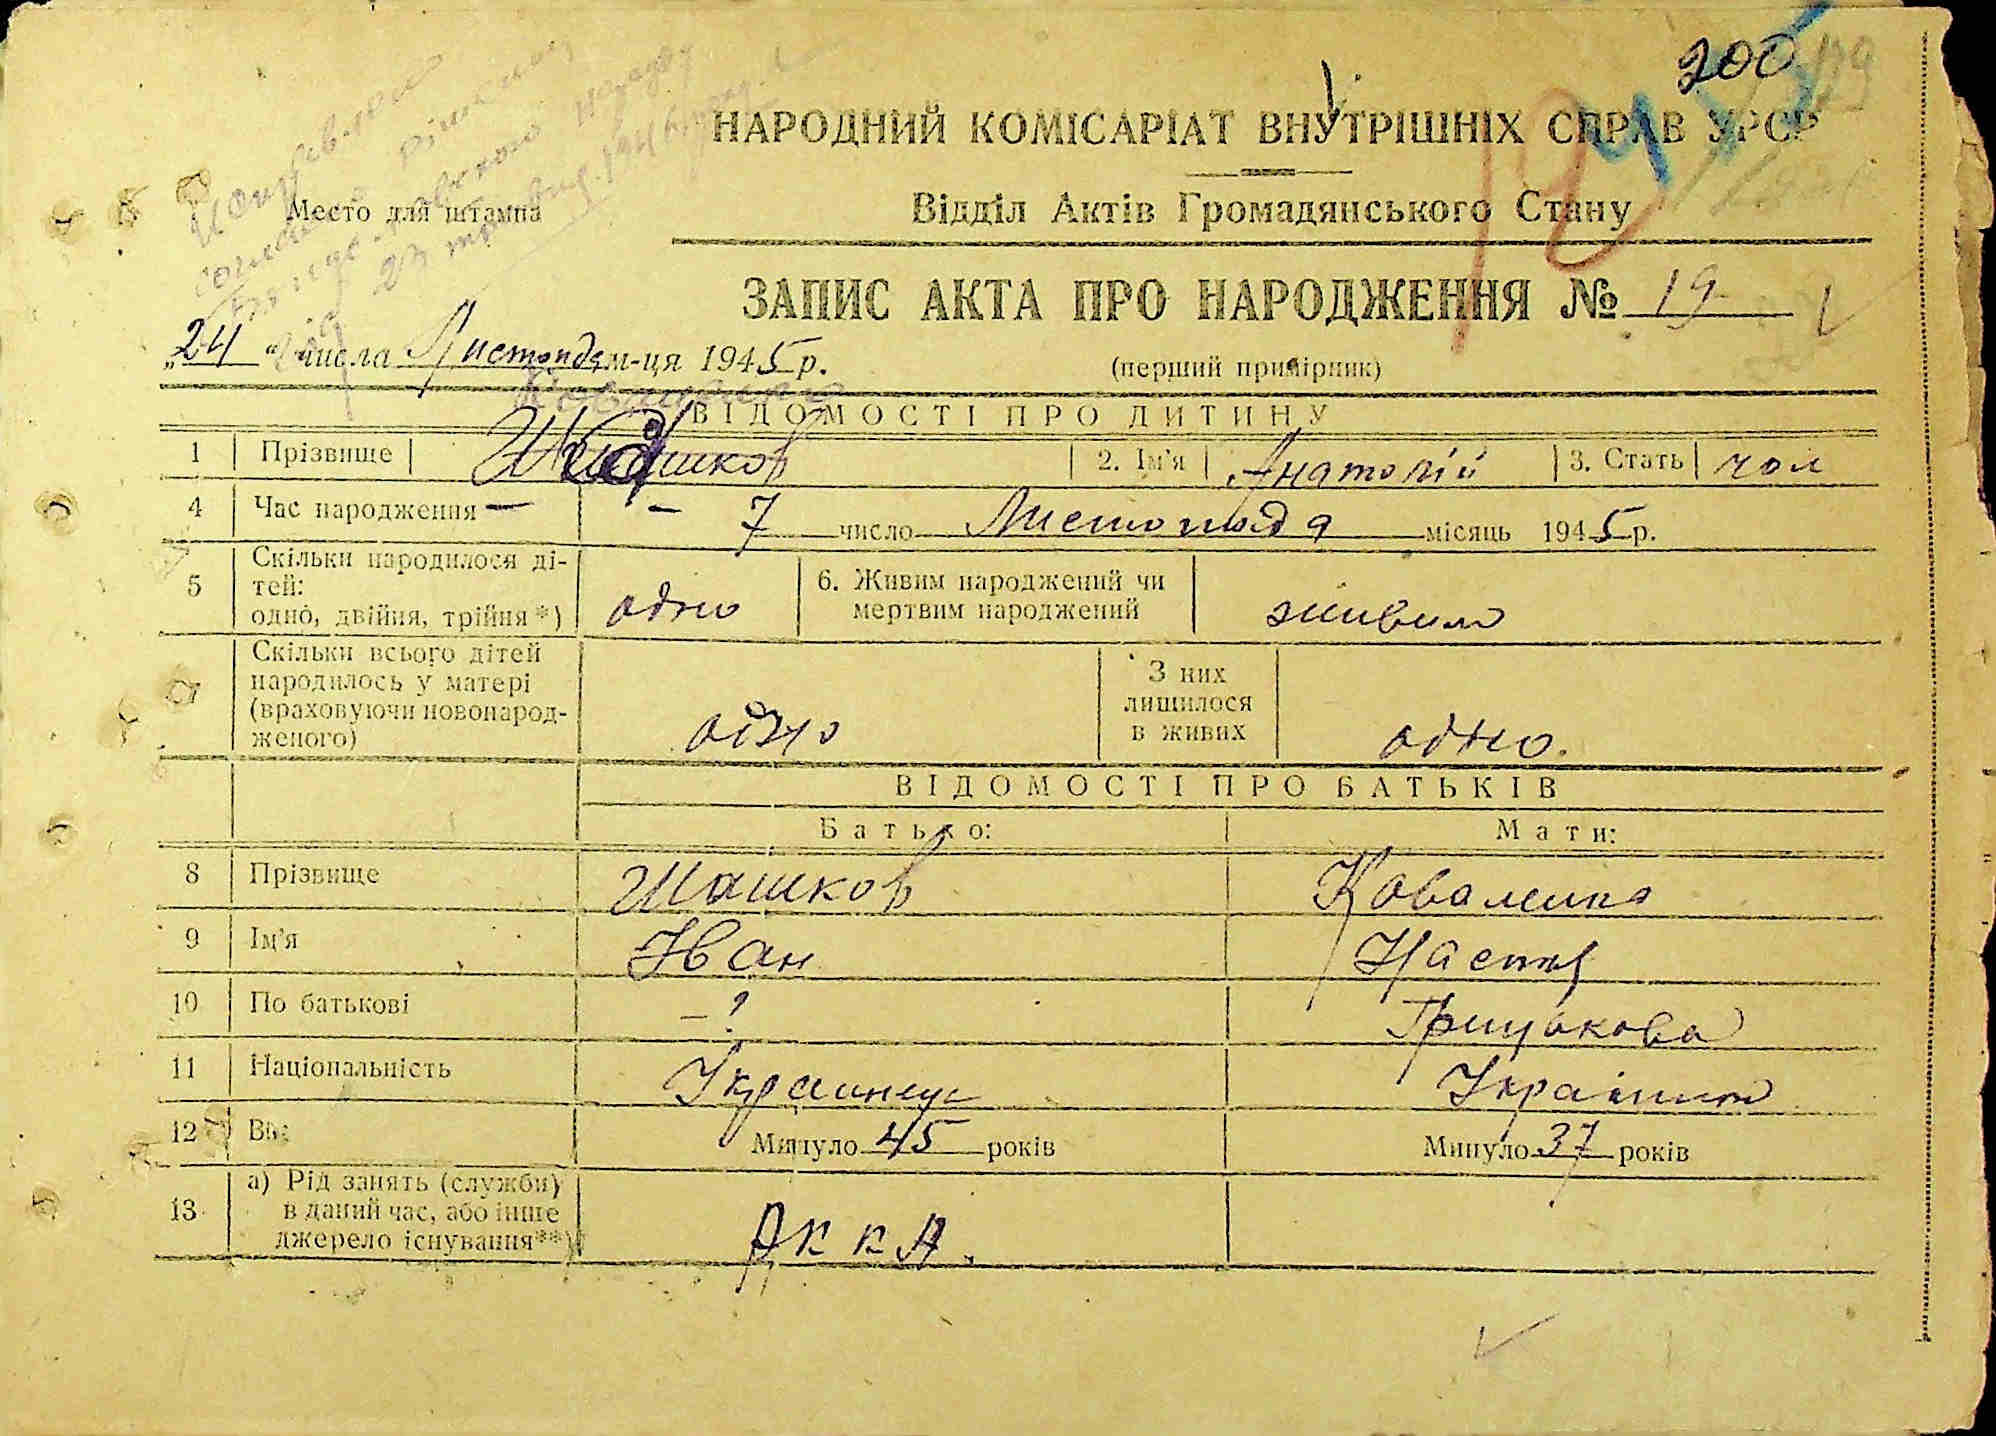 200
НАРОДНИЙ КОМІСАРІАТ ВНУТРІШНІХ СПРАВ УРСР
Відділ Актів Громадянського Стану
Место для штампа
23 травня 1946
ЗАПИС АКТА ПРО НАРОДЖЕННЯ № 19
(перший примірник)
„24“ числа Листопада м-ця 1945 р.
Коваленко
ВІДОМОСТІ ПРО ДИТИНУ
1 Прізвище Шашков 2. Ім'я Анатолій 3. Стать чол
4 Час народження — — 7 число Листопада місяць 1945 р.
5 Скільки народилося ді-
тей:
одно, двійня, трійня*) одно
6. Живим народжений чи
мертвим народжений живим
7 Скільки всього дітей
народилось у матері
(враховуючи новонарод-
женого) одно
З них
лишилося
в живих одно.
ВІДОМОСТІ ПРО БАТЬКІВ
Батько: Мати:
8 Прізвище Шашков Коваленко
9 Ім'я Іван Настя
10 По батькові —? Грицькова
11 Національність Українець Українка
12 Вік Минуло 45 років Минуло 37 років
13 а) Рід занять (служби)
в даний час, або інше
джерело існування**) РККА.